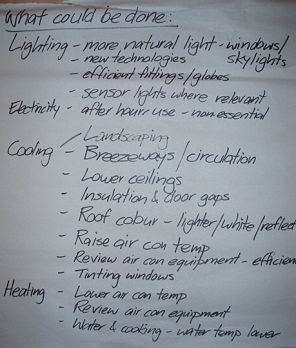 What could be done:
Lighting - more natural light - windows/
skylights
- new technologies
- efficient fittings/globes
- sensor lights where relevant
Electricity - after hours use - non essential
Landscaping
Cooling - Breezeways/circulation
- Lower ceilings
- Insulation & door gaps
- Roof colour - lighter/white/reflect
- Raise air con temp
- Review air con equipment - efficien
- Tinting windows
Heating - Lower air con temp
- Review air con equipment
- Water & cooking - water temp lower